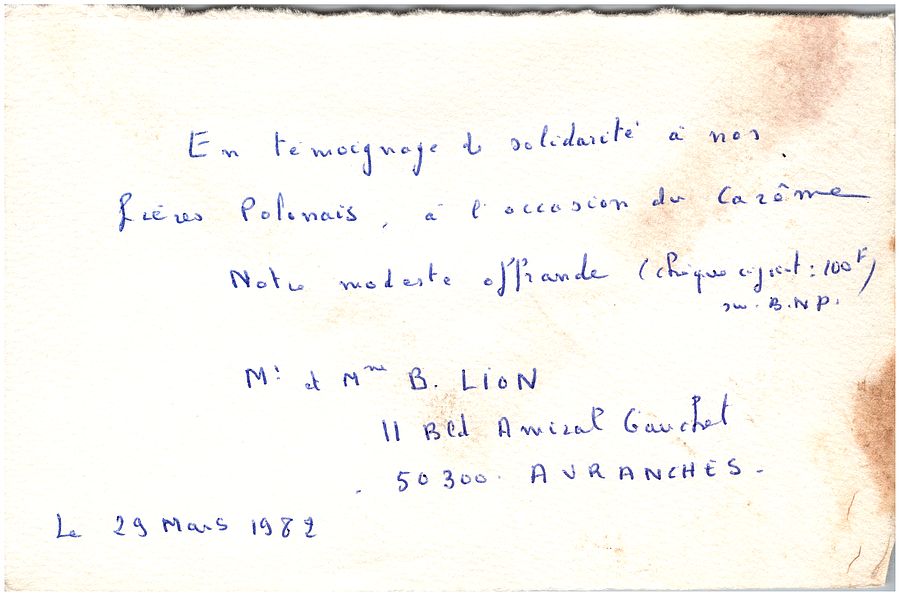 En témoignage de solidarité à nos
frères Polonais, à l'occasion du Carême
Notre modeste offrande (chèque ci-joint : 100F)
sur B.N.P.
Mr et Mme B. LION
11 Bld Amiral Gauchet
50300. AVRANCHES.
Le 29 Mars 1982